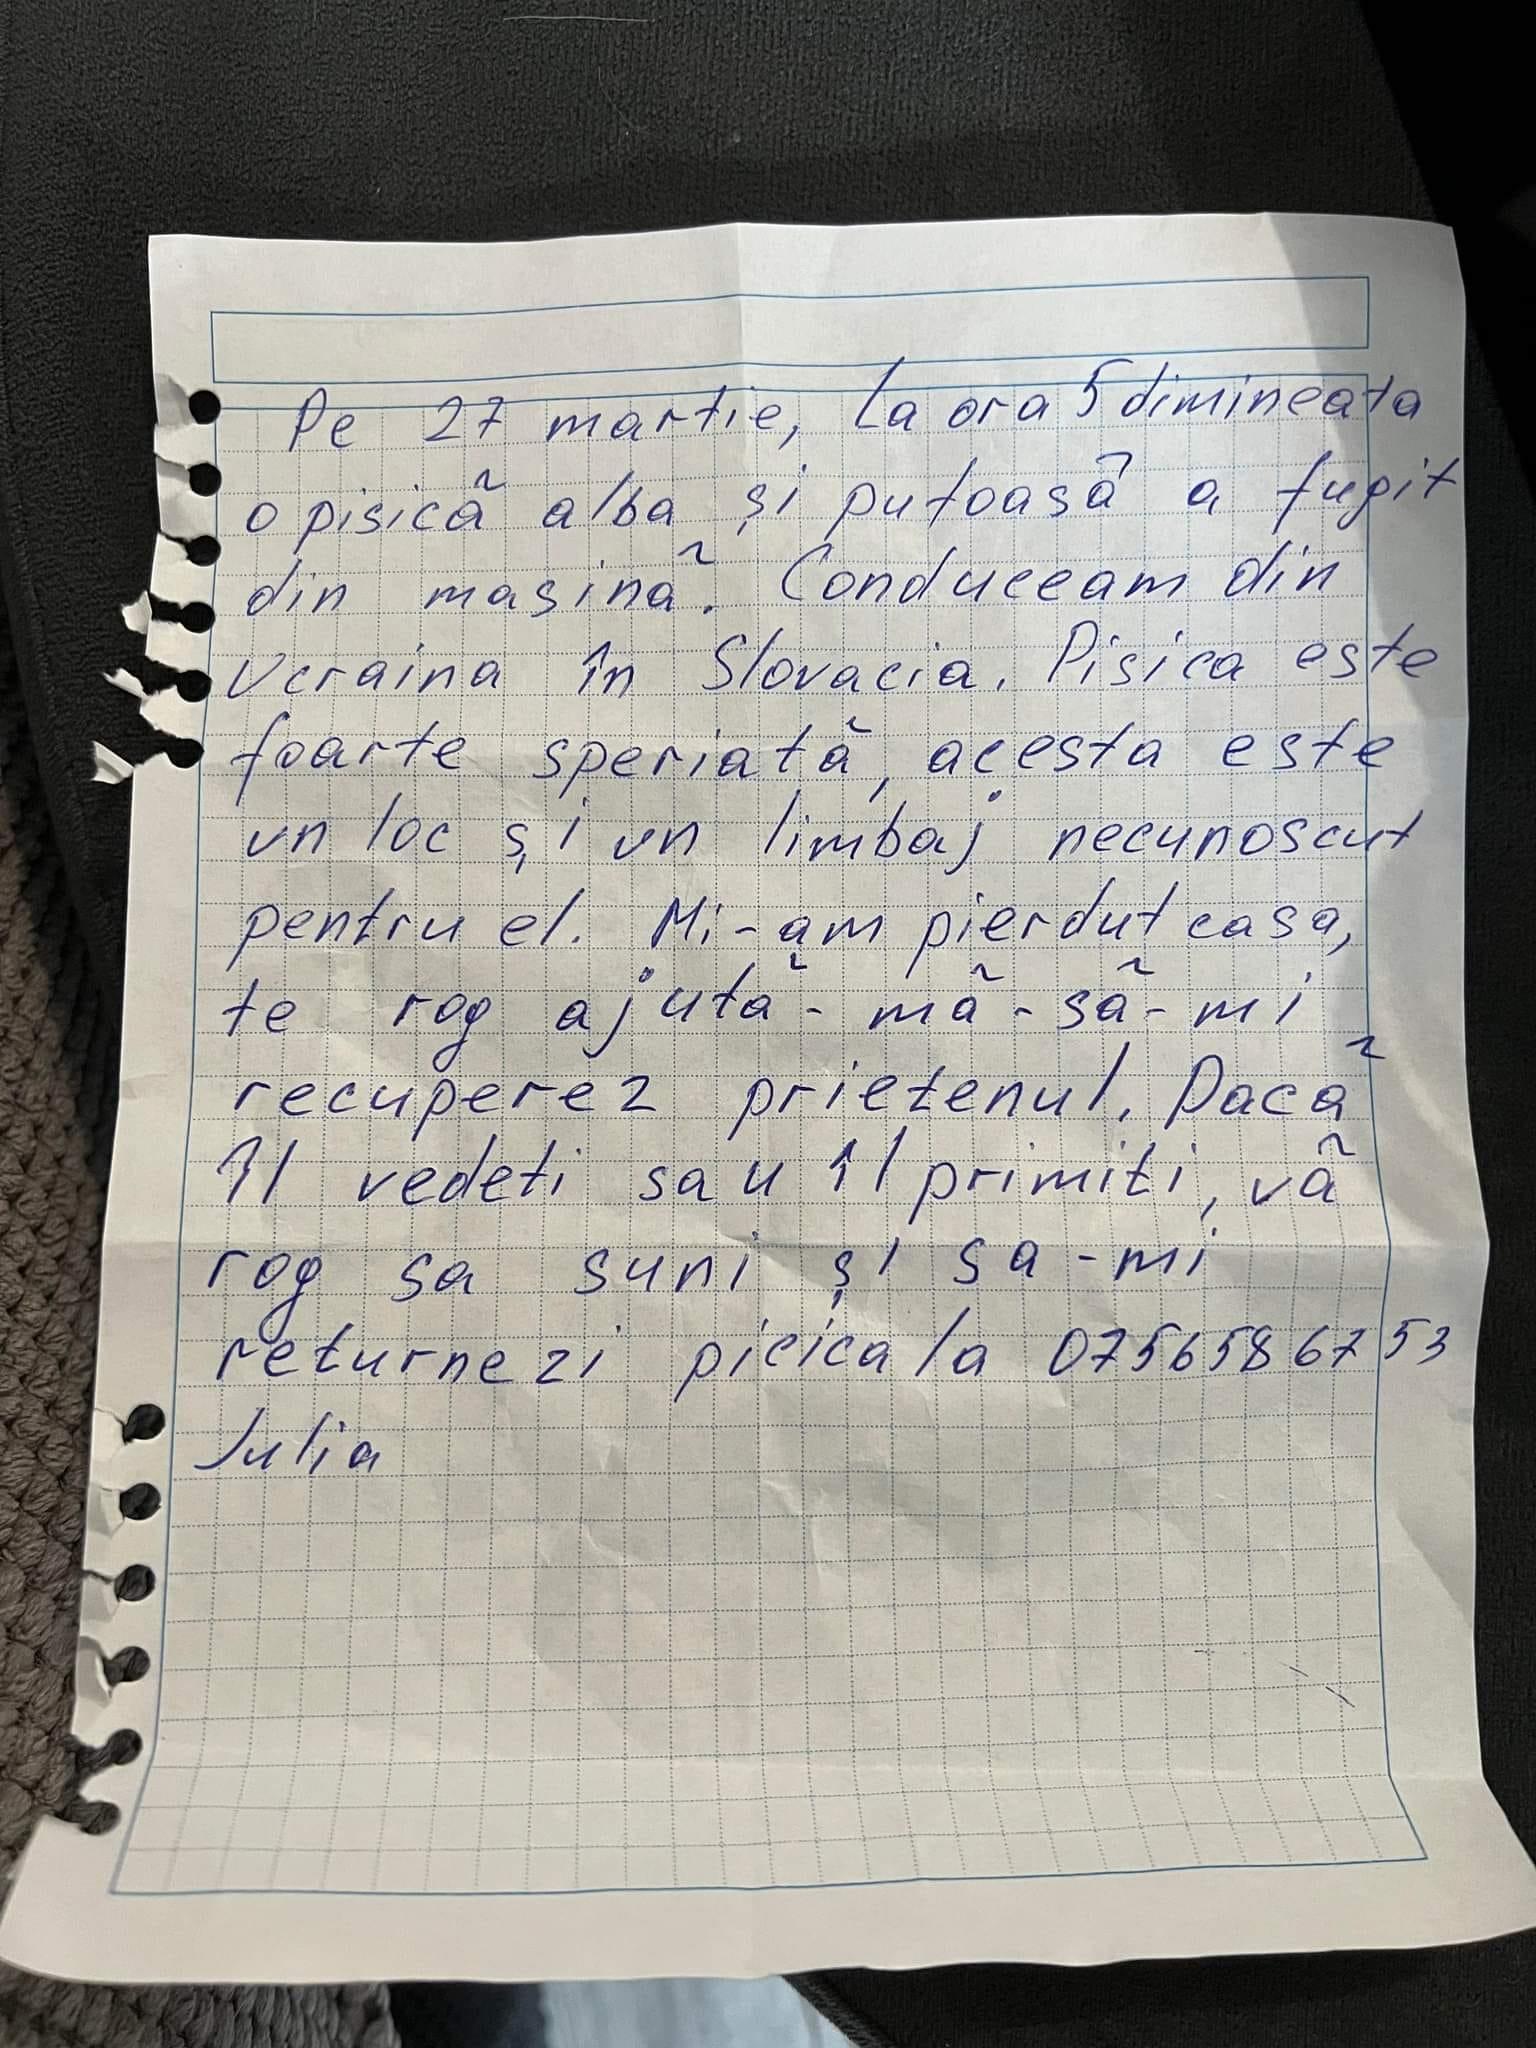 Pe 27 martie, la ora 5 dimineata
o pisică alba și putoasă a fugit
din masină. Conduceeam din
Ucraina în Slovacia. Pisica este
foarte speriată, acesta este
un loc și un limbaj necunoscut
pentru el. Mi-am pierdut casa,
te rog ajută-mă-să-mi
recuperez prietenul. Dacă
îl vedeti sau îl primiti, vă
rog sa suni și sa-mi
returnezi picica la 0756586753
Julia